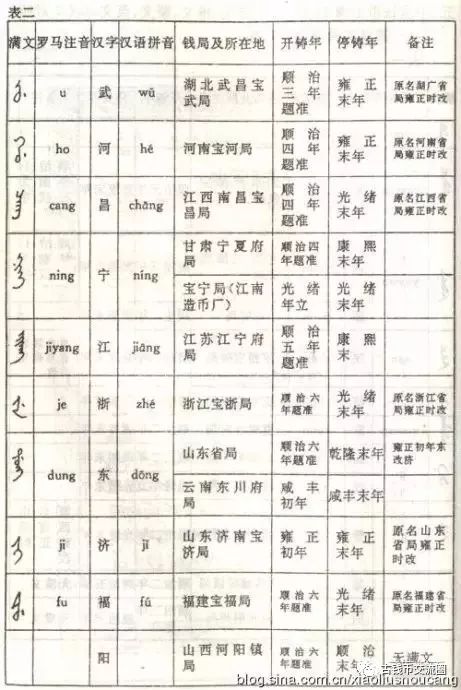 表二
满文 罗马注音 汉字 汉语拼音 钱局及所在地 开铸年 停铸年 备注
u 武 wǔ 湖北武昌宝武局 顺治三年题准 雍正末年 原名湖广省局雍正时改
ho 河 hé 河南宝河局 顺治四年题准 雍正末年 原名河南省局雍正时改
cang 昌 chāng 江西南昌宝昌局 顺治四年题准 光绪末年 原名江西省局雍正时改
ning 宁 níng 甘肃宁夏府局 顺治四年题准 康熙末年
宝宁局(江南造币厂) 光绪年立 光绪末年
jiyang 江 jiāng 江苏江宁府局 顺治五年题准 康熙末
je 浙 zhé 浙江宝浙局 顺治六年题准 光绪末年 原名浙江省局雍正时改
dung 东 dōng 山东省局 顺治六年题准 乾隆末年 雍正初年东改济
云南东川府局 咸丰初年 咸丰末年
ji 济 jǐ 山东济南宝济局 雍正初年 雍正末年 原名山东省局雍正时改
fu 福 fú 福建宝福局 顺治六年题准 光绪末年 原名福建省局雍正时改
阳 山西河阳镇局 顺治六年题准 顺治末年 无满文
古钱币交流圈
blog.sina.com.cn/xiaoliushoucang